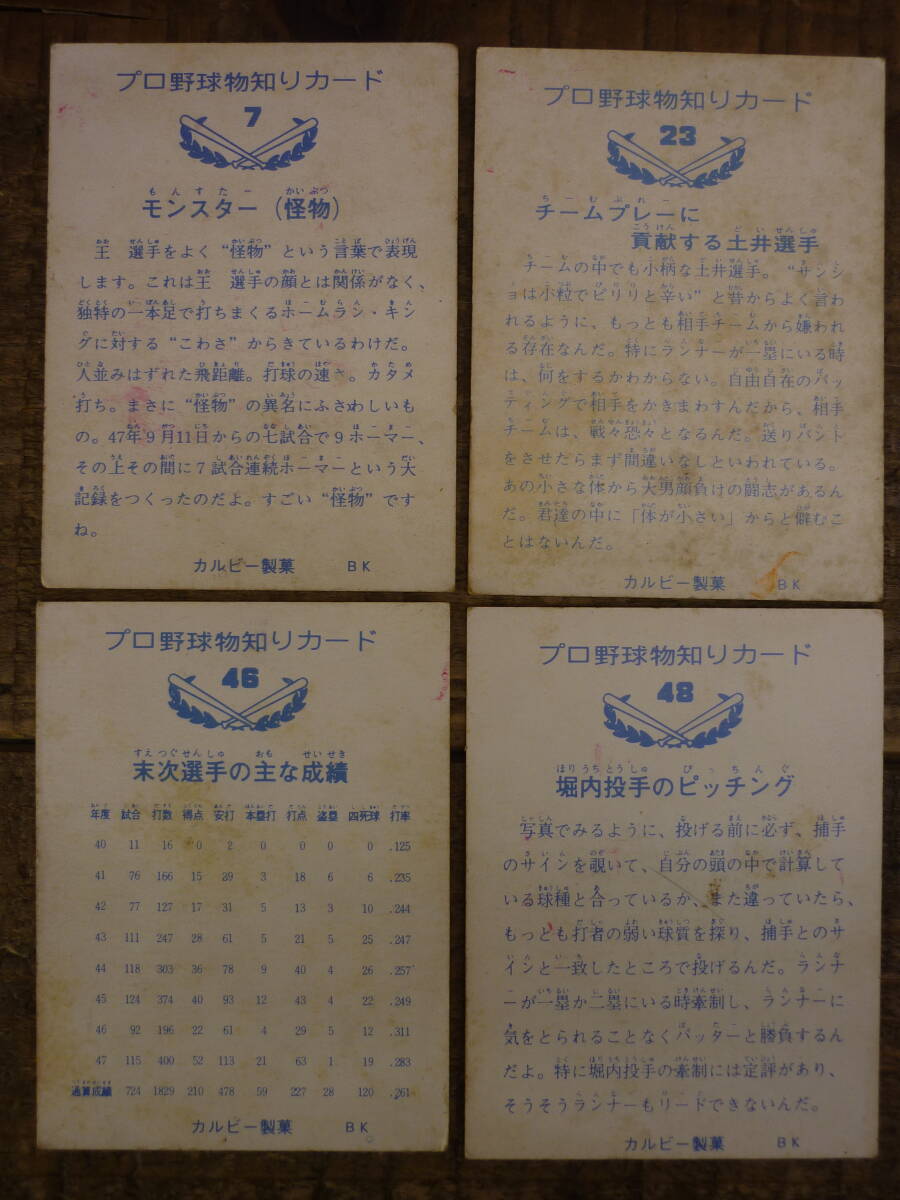 プロ野球物知りカード
7
もんすたー かいぶつ
モンスター(怪物)
王 選手をよく“怪物”という言葉で表現
します。これは王 選手の顔とは関係がなく、
独特の一本足で打ちまくるホームラン・キン
グに対する“こわさ”からきているわけだ。
人並みはずれた飛距離。打球の速さ。カタメ
打ち。まさに“怪物”の異名にふさわしいも
の。47年9月11日からの七試合で9ホーマー、
その上その間に7試合連続ホーマーという大
記録をつくったのだよ。すごい“怪物”です
ね。
カルビー製菓 BK
プロ野球物知りカード
23
ちーむぷれー
チームプレーに
こうけん どいせんしゅ
貢献する土井選手
チームの中でも小柄な土井選手。“サンシ
ョは小粒でピリリと辛い”と昔からよく言わ
れるように、もっとも相手チームから嫌われ
る存在なんだ。特にランナーが一塁にいる時
は、何をするかわからない。自由自在のバッ
ティングで相手をかきまわすんだから、相手
チームは、戦々恐々となるんだ。送りバント
をさせたらまず間違いなしといわれている。
あの小さな体から大男顔負けの闘志があるん
だ。君達の中に「体が小さい」からと僻むこ
とはないんだ。
カルビー製菓 BK
プロ野球物知りカード
46
すえつぐせんしゅ おも せいせき
末次選手の主な成績
年度 試合 打数 得点 安打 本塁打 打点 盗塁 四死球 打率
40 11 16 0 2 0 0 0 0 .125
41 76 166 15 39 3 18 6 6 .235
42 77 127 17 31 5 13 3 10 .244
43 111 247 28 61 5 21 5 25 .247
44 118 303 36 78 9 40 4 26 .257
45 124 374 40 93 12 43 4 22 .249
46 92 196 22 61 4 29 5 12 .311
47 115 400 52 113 21 63 1 19 .283
通算成績 724 1829 210 478 59 227 28 120 .261
カルビー製菓 BK
プロ野球物知りカード
48
ほりうちとうしゅ ぴっちんぐ
堀内投手のピッチング
写真でみるように、投げる前に必ず、捕手
のサインを覗いて、自分の頭の中で計算して
いる球種と合っているか、また違っていたら、
もっとも打者の弱い球質を探り、捕手とのサ
インと一致したところで投げるんだ。ランナ
ーが一塁か二塁にいる時牽制し、ランナーに
気をとられることなくバッターと勝負するん
だよ。特に堀内投手の牽制には定評があり、
そうそうランナーもリードできないんだ。
カルビー製菓 BK